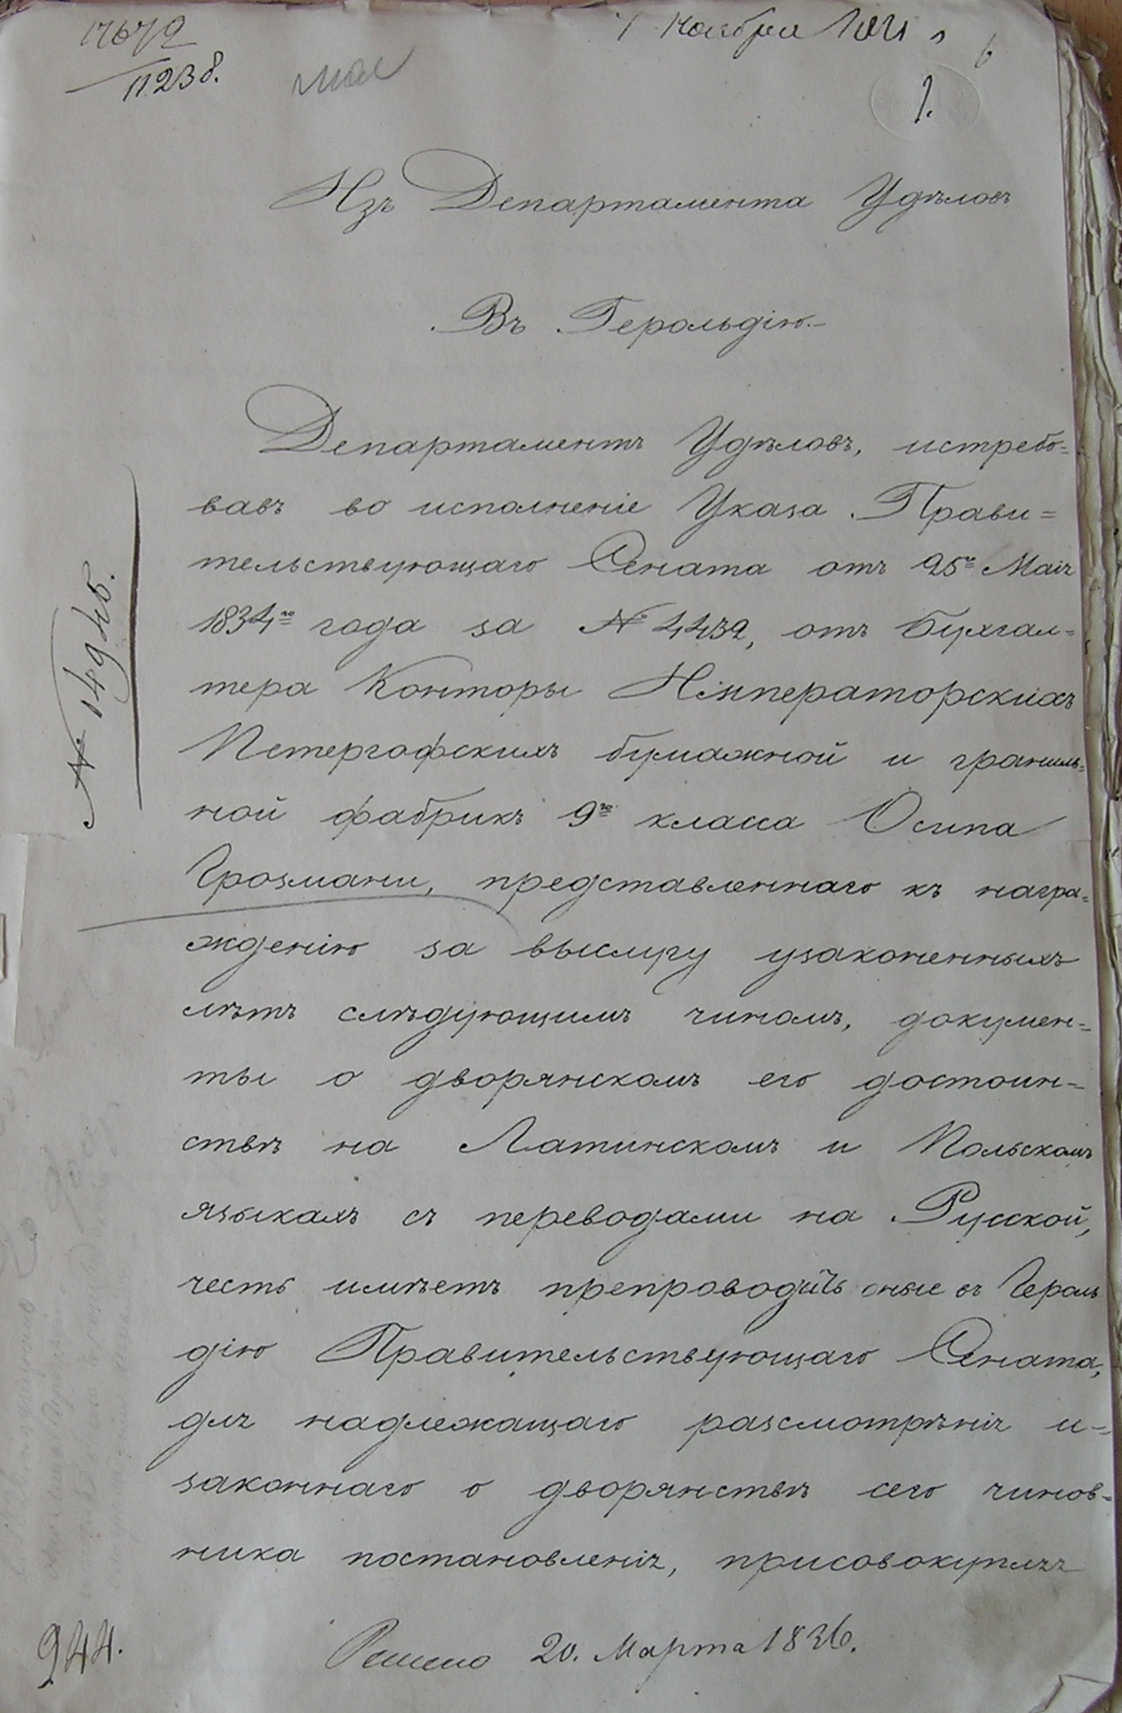 11238.
Ноября
1.
Изъ Департамента Удѣловъ
Въ Герольдію.
Департаментъ Удѣловъ, истребо=
вавъ во исполненіе Указа Прави=
тельствующаго Сената отъ 25го Маія
1834го года за № 4439, отъ Бухгал=
тера Конторы Императорскихъ
Петергофскихъ бумажной и граниль=
ной фабрикъ 9го класса Осипа
Грозмани, представленнаго къ награ=
жденію за выслугу узаконенныхъ
лѣтъ слѣдующимъ чиномъ, докумен=
ты о дворянскомъ его достоин=
ствѣ на Латинскомъ и Польскомъ
языкахъ съ переводами на Русской,
честь имѣетъ препроводить оные въ Героль
дію Правительствующаго Сената,
для надлежащаго разсмотрѣнія и=
законнаго о дворянствѣ сего чинов=
ника постановленія, присовокупляя
№ 14945.
944.
Решено 20. Марта 1836.